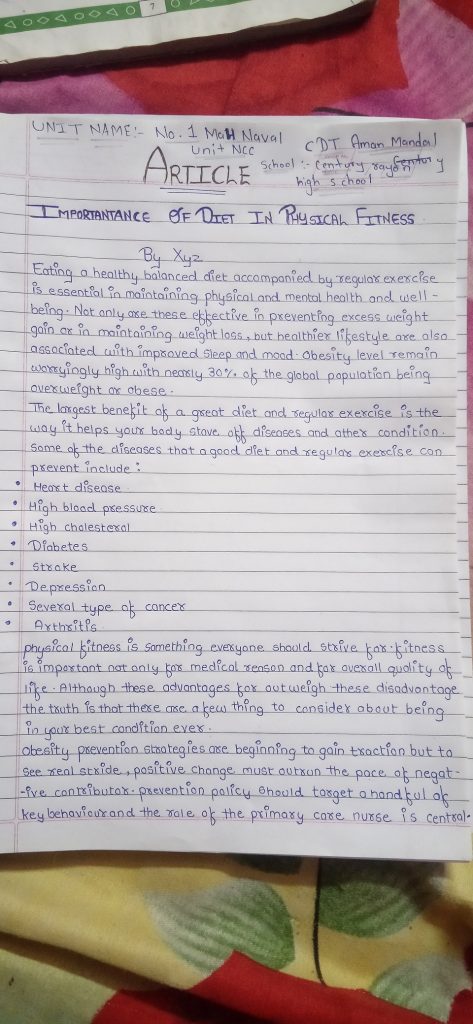 UNIT NAME:- No. 1 MaH Naval
Unit NCC
CDT Aman Mandal
School :- Century rayon
high school
ARTICLE
IMPORTANTANCE OF DIET IN PHYSICAL FITNESS
By Xyz
Eating a healthy balanced diet accompanied by regular exercise
is essential in maintaining physical and mental health and well-
being. Not only are these effective in preventing excess weight
gain or in maintaining weight loss, but healthier lifestyle are also
associated with improved sleep and mood. Obesity level remain
worryingly high with nearly 30% of the global population being
overweight or obese.
The largest benefit of a great diet and regular exercise is the
way it helps your body stave off diseases and other condition.
some of the diseases that a good diet and regular exercise can
prevent include:
• Heart disease
• High blood pressure
• High cholesterol
• Diabetes
• Stroke
• Depression
• Several type of cancer
• Arthritis
physical fitness is something everyone should strive for. fitness
is important not only for medical renson and for overall quality of
life. Although these advantages far outweigh these disadvantage
the truth is that there are a few thing to consider about being
in your best condition ever.
obesity prevention strategies are beginning to gain traction but to
see real stride, positive change must outrun the pace of negat-
-ive contributor. prevention policy should target a handful of
key behaviour and the role of the primary care nurse is central.